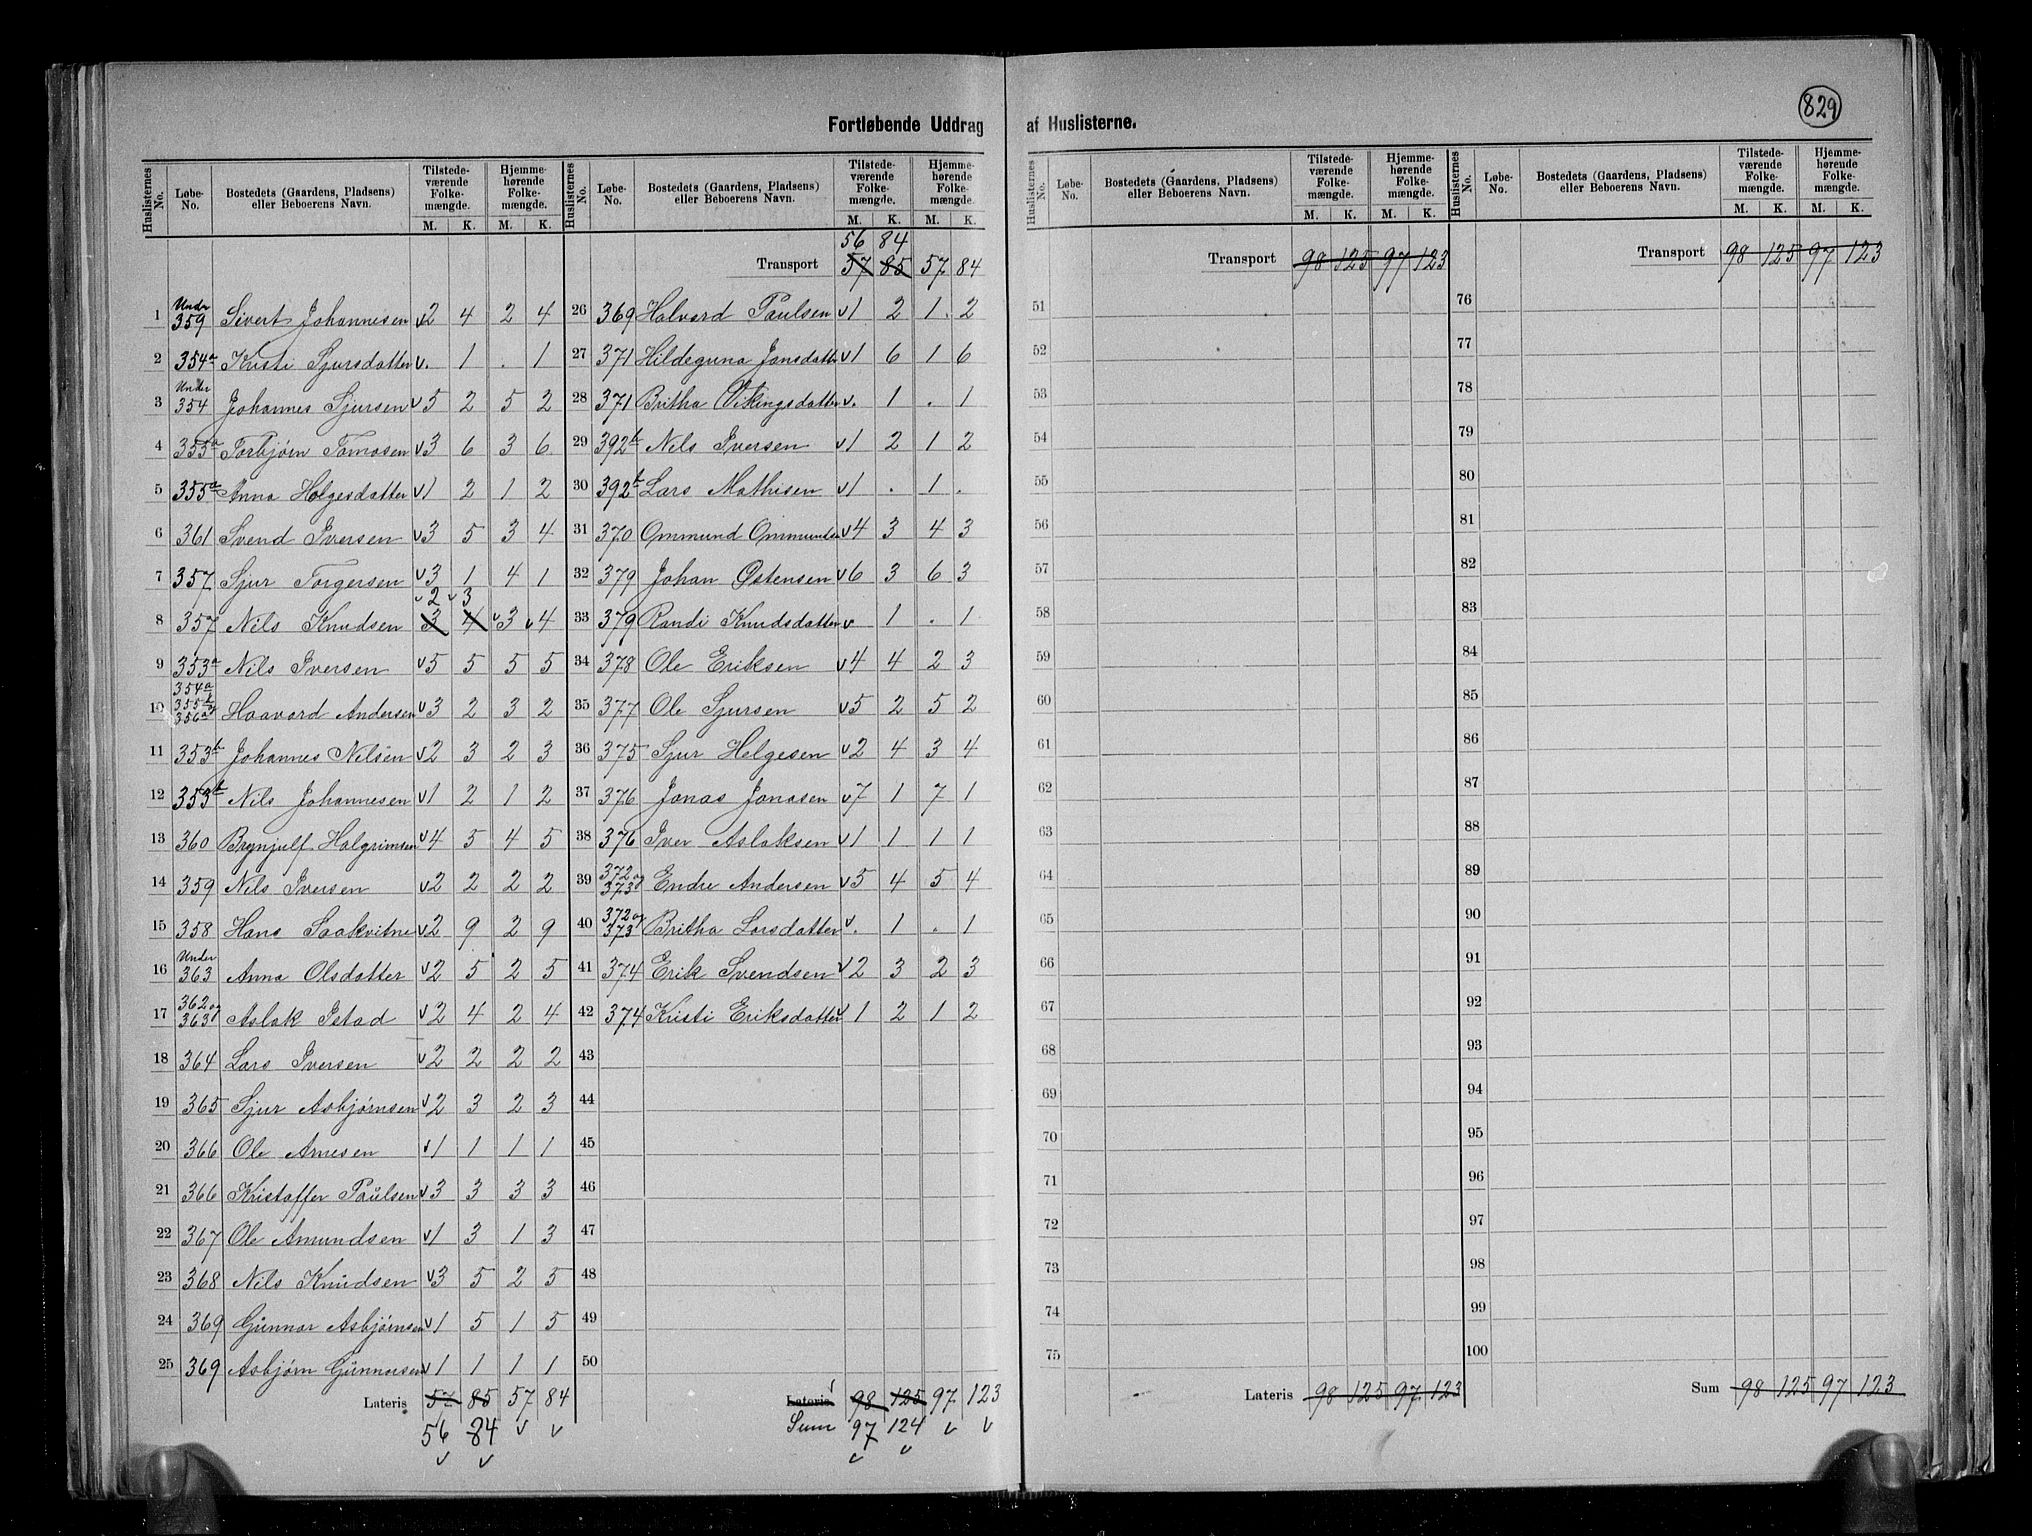 829
Fortløbende Uddrag af Huslisterne.
Huslisternes No. | Løbe-No. | Bostedets (Gaardens, Pladsens) eller Beboerens Navn. | Tilstedeværende Folkemængde. M. K. | Hjemmehørende Folkemængde. M. K.
1 Under 359 Sivert Johannesen v2 4 2 4
2 354a Kristi Sjursdatter v. 1 . 1
3 Under 354 Johannes Sjursen v5 2 5 2
4 355a Torbjørn Tomasen v3 6 3 6
5 355a Anna Holgesdatter v1 2 1 2
6 361 Svend Iversen v3 5 3 4
7 357 Sjur Torgersen v3 1 4 1
v2 v3
8 357 Nils Knudsen 3 4 v3 v4
9 353a Nils Iversen v5 5 5 5
10 354a 355b 356a Haavard Andersen v3 2 3 2
11 353b Johannes Nilsen v2 3 2 3
12 353b Nils Johannesen v1 2 1 2
13 360 Brynjulf Halgrimsen v4 5 4 5
14 359 Nils Iversen v2 2 2 2
15 358 Hans Saakvitne v2 9 2 9
16 Under 363 Anna Olsdatter v2 5 2 5
17 362 og 363 Aslak Istad v2 4 2 4
18 364 Lars Iversen v2 2 2 2
19 365 Sjur Asbjørnsen v2 3 2 3
20 366 Ole Arnesen v1 1 1 1
21 366 Kristaffer Paulsen v3 3 3 3
22 367 Ole Amundsen v1 3 1 3
23 368 Nils Knudsen v3 5 2 5
24 369 Gunnar Asbjørnsen v1 5 1 5
25 369 Asbjørn Gunnarsen v1 1 1 1
Lateris 57 85 57 84
56 84 v v
v v
Huslisternes No. | Løbe-No. | Bostedets (Gaardens, Pladsens) eller Beboerens Navn. | Tilstedeværende Folkemængde. M. K. | Hjemmehørende Folkemængde. M. K.
56 84
Transport 57 85 57 84
26 369 Halvard Paulsen v1 2 1 . 2
27 371 Hildeguna Jonsdatter v1 6 1 6
28 371 Britha Vikingsdatter v. 1 . 1
29 392b Nils Iversen v1 2 1 2
30 392b Lars Mathisen v1 . 1 .
31 370 Ommund Ommundsen v4 3 4 3
32 379 Johan Østensen v6 3 6 3
33 379 Randi Knudsdatter v 1 . 1
34 378 Ole Eriksen v4 4 2 3
35 377 Ole Sjursen v5 2 5 2
36 375 Sjur Helgesen v2 4 3 4
37 376 Jonas Jonasen v7 1 7 1
38 376 Iver Aslaksen v1 1 1 1
39 372 og 373 Endre Andersen v5 4 5 4
40 372 og 373 Britha Larsdatter v. 1 . 1
41 374 Erik Svendsen v2 3 2 3
42 374 Kristi Eriksdatter v1 2 1 2
43
44
45
46
47
48
49
50
Lateris 98 125 97 123
Sum 97 124 v v
v v
Huslisternes No. | Løbe-No. | Bostedets (Gaardens, Pladsens) eller Beboerens Navn. | Tilstedeværende Folkemængde. M. K. | Hjemmehørende Folkemængde. M. K.
Transport 98 125 97 123
51
52
53
54
55
56
57
58
59
60
61
62
63
64
65
66
67
68
69
70
71
72
73
74
75
Lateris 98 125 97 123
Huslisternes No. | Løbe-No. | Bostedets (Gaardens, Pladsens) eller Beboerens Navn. | Tilstedeværende Folkemængde. M. K. | Hjemmehørende Folkemængde. M. K.
Transport 98 125 97 123
76
77
78
79
80
81
82
83
84
85
86
87
88
89
90
91
92
93
94
95
96
97
98
99
100
Sum 98 125 97 123